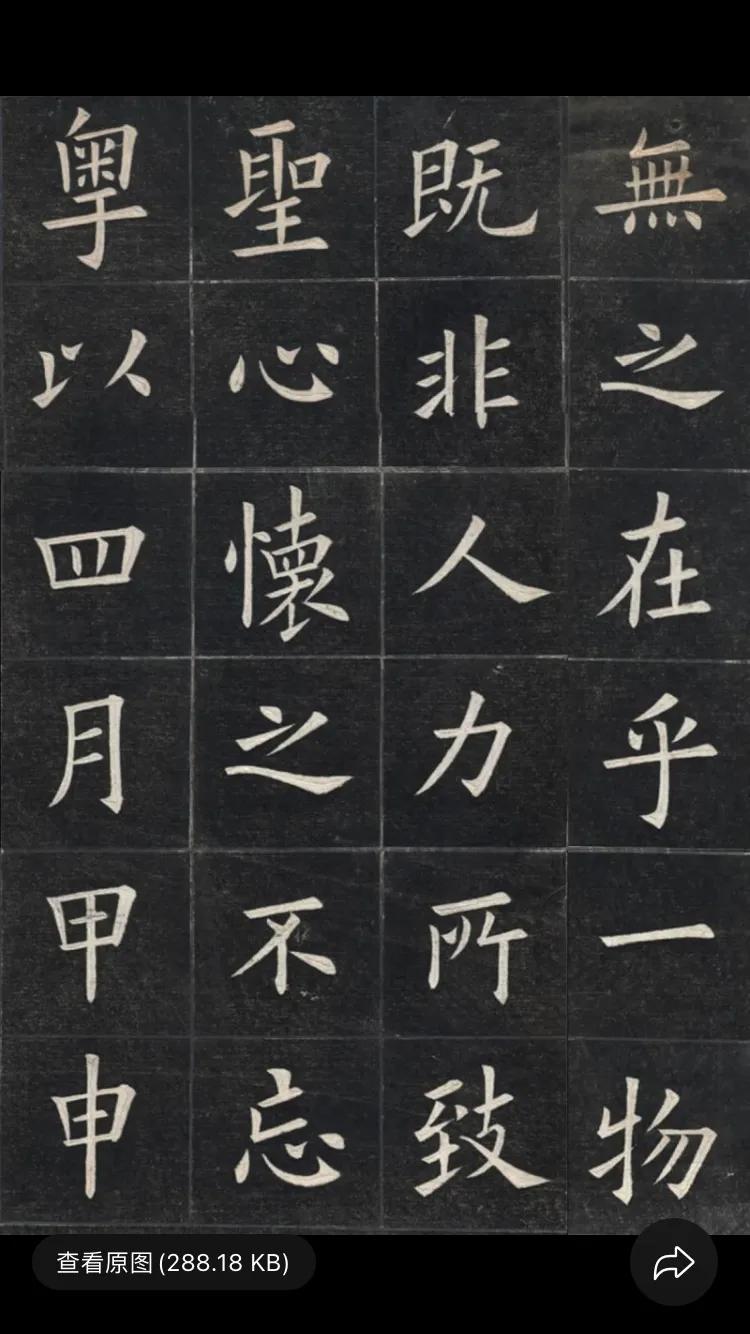 無之在乎一物
既非人力所致
聖心懷之不忘
粵以四月甲申
查看原图(288.18 KB)